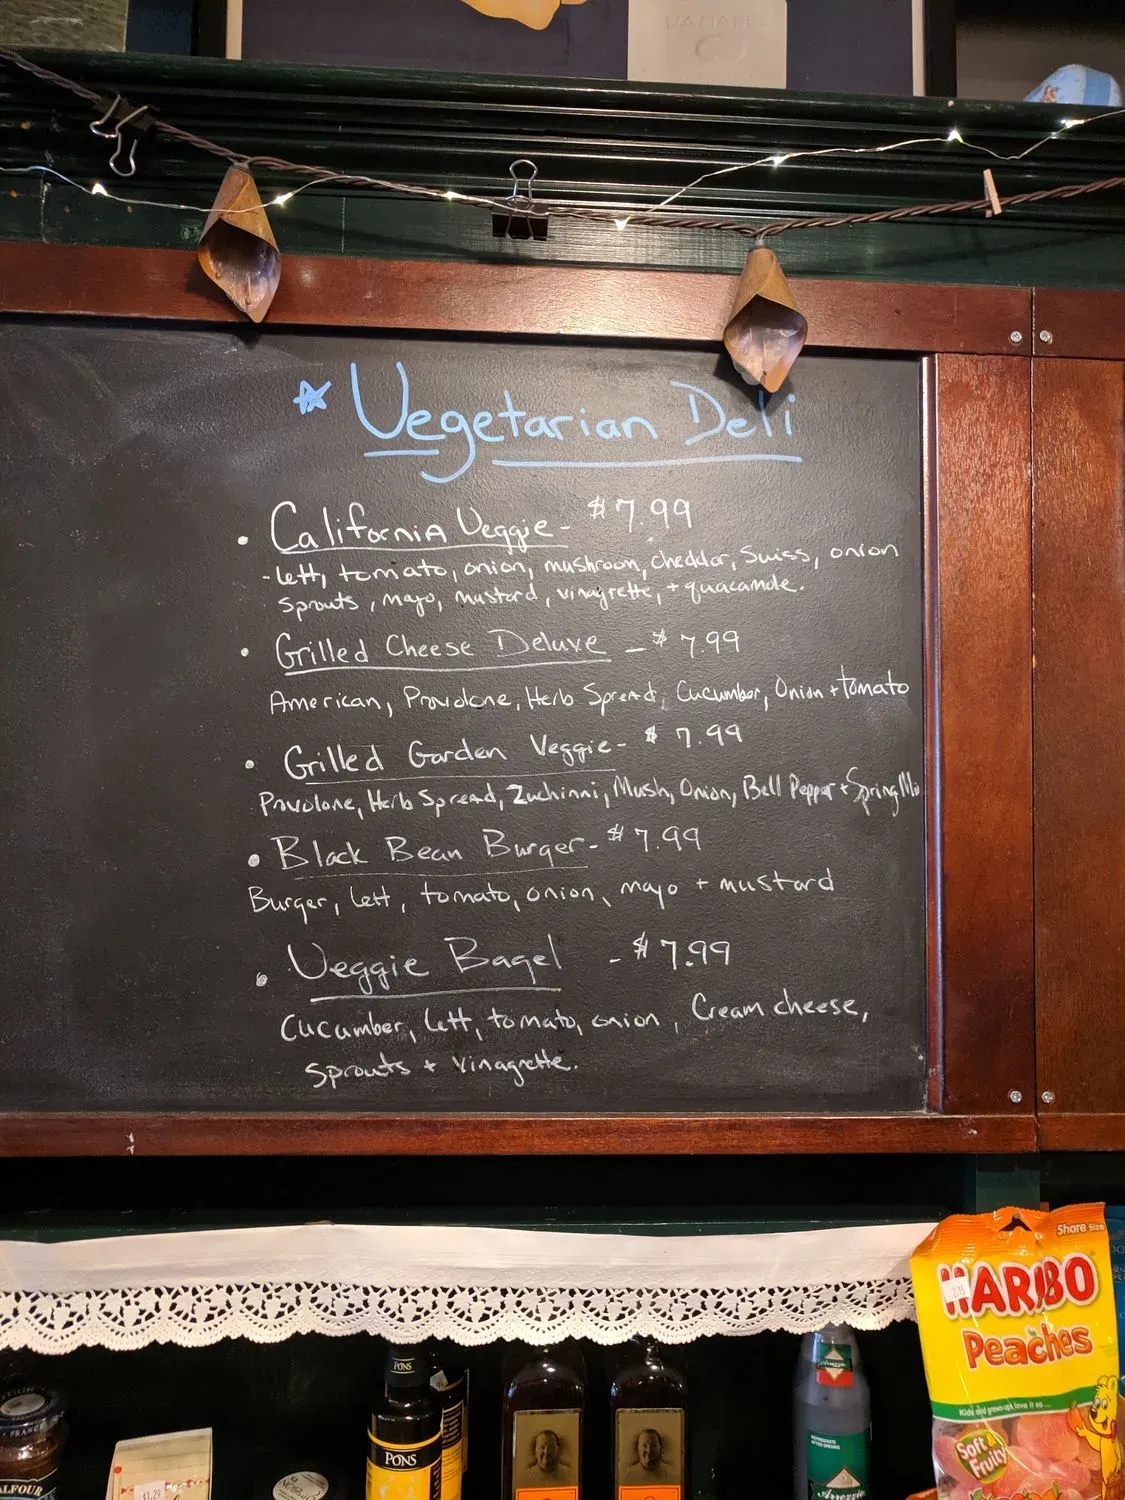 LAMANDE
* Vegetarian Deli
• California Veggie - $7.99
- lett, tomato, onion, mushroom, cheddar, Swiss, onion
sprouts, mayo, mustard, vinagrette, + guacamole.
• Grilled Cheese Deluxe - $7.99
American, Provolone, Herb Spread, Cucumber, Onion + tomato
• Grilled Garden Veggie - $7.99
Provolone, Herb Spread, Zuchinni, Mush, Onion, Bell Pepper + Spring Mi
• Black Bean Burger - $7.99
Burger, lett, tomato, onion, mayo + mustard
• Veggie Bagel - $7.99
Cucumber, lett, tomato, onion, Cream cheese,
Sprouts + vinagrette.
Share Size
HARIBO
2.15
Peaches
Kids and grown-ups love it so ...
Soft &
Fruity
PONS
PONS
FRANCE
ALFOUR
$1.29
REFRIGERATE
AFTER OPENING
Arrezzio
Arrezzio